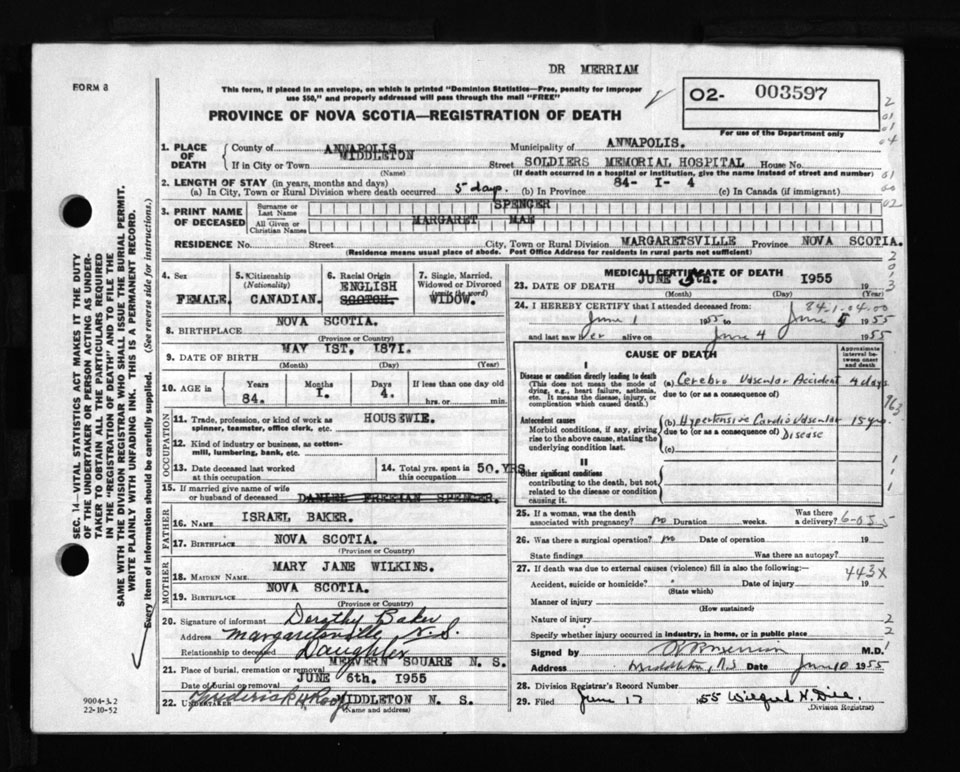 DR MERRIAM
FORM 8
This form, if placed in an envelope, on which is printed "Dominion Statistics—Free, penalty for improper
use $50," and properly addressed will pass through the mail "FREE"
02- 003597
For use of the Department only
PROVINCE OF NOVA SCOTIA—REGISTRATION OF DEATH
SEC. 14—VITAL STATISTICS ACT MAKES IT THE DUTY
OF THE UNDERTAKER OR PERSON ACTING AS UNDER-
TAKER TO OBTAIN ALL THE PARTICULARS REQUIRED
IN THE "REGISTRATION OF DEATH" AND TO FILE THE
SAME WITH THE DIVISION REGISTRAR WHO SHALL ISSUE THE BURIAL PERMIT.
WRITE PLAINLY WITH UNFADING INK. THIS IS A PERMANENT RECORD.
Every item of information should be carefully supplied. (See reverse side for instructions.)
1. PLACE OF DEATH County of ANNAPOLIS Municipality of ANNAPOLIS.
If in City or Town MIDDLETON (Name) Street SOLDIERS MEMORIAL HOSPITAL House No.
(If death occurred in a hospital or institution, give the name instead of street and number)
2. LENGTH OF STAY (in years, months and days) 84- I- 4
(a) In City, Town or Rural Division where death occurred 5 days. (b) In Province (c) In Canada (if immigrant)
3. PRINT NAME OF DECEASED Surname or Last Name SPENCER
All Given or Christian Names MARGARET MAE
RESIDENCE No. Street City, Town or Rural Division MARGARETSVILLE Province NOVA SCOTIA.
(Residence means usual place of abode. Post Office Address for residents in rural parts not sufficient)
4. Sex FEMALE.
5. Citizenship (Nationality) CANADIAN.
6. Racial Origin ENGLISH SCOTCH.
7. Single, Married, Widowed or Divorced (write the word) WIDOW.
8. BIRTHPLACE NOVA SCOTIA.
(Province or Country)
9. DATE OF BIRTH MAY IST, I87I.
(Month) (Day) (Year)
10. AGE IN Years 84. Months I. Days 4. If less than one day old hrs. or min.
OCCUPATION
11. Trade, profession, or kind of work as spinner, teamster, office clerk, etc. HOUSEWIE.
12. Kind of industry or business, as cotton-mill, lumbering, bank, etc.
13. Date deceased last worked at this occupation
14. Total yrs. spent in this occupation 50.YRS.
15. If married give name of wife or husband of deceased DANIEL FREEMAN SPENCER.
FATHER
16. NAME ISRAEL BAKER.
17. BIRTHPLACE NOVA SCOTIA.
(Province or Country)
MOTHER
18. MAIDEN NAME MARY JANE WILKINS.
19. BIRTHPLACE NOVA SCOTIA.
(Province or Country)
20. Signature of informant Dorothy Baker
Address Margaretsville N.S.
Relationship to deceased Daughter
21. Place of burial, cremation or removal MELVERN SQUARE N. S.
Date of burial or removal JUNE 6th. I955
22. UNDERTAKER Frederick H Roop MIDDLETON N. S.
(Name and address)
9004-3.2
22-10-52
MEDICAL CERTIFICATE OF DEATH
23. DATE OF DEATH JUNE 5th. I955 19
(Month) (Day) (Year)
24. I HEREBY CERTIFY that I attended deceased from: 84-1-04.00
June 1 1955 to June 5 1955
and last saw her alive on June 4 1955
CAUSE OF DEATH
Approximate interval between onset and death
I
Disease or condition directly leading to death
(This does not mean the mode of dying, e.g., heart failure, asthenia, etc. It means the disease, injury, or complication which caused death.)
(a) Cerebro Vascular Accident 4 days
due to (or as a consequence of)
Antecedent causes
Morbid conditions, if any, giving rise to the above cause, stating the underlying condition last.
(b) Hypertensive Cardio Vascular Disease 15 yrs.
due to (or as a consequence of)
(c)
II
Other significant conditions
contributing to the death, but not related to the disease or condition causing it.
25. If a woman, was the death associated with pregnancy? no Duration weeks. Was there a delivery? 6-055
26. Was there a surgical operation? no Date of operation 19
State findings Was there an autopsy?
27. If death was due to external causes (violence) fill in also the following:— 443X
Accident, suicide or homicide? Date of injury 19
(State which)
Manner of injury
(How sustained)
Nature of injury
Specify whether injury occurred in industry, in home, or in public place
Signed by Merriam M.D.
Address Middleton, N.S Date June 10 1955
28. Division Registrar's Record Number
29. Filed June 17 1955 Wilfred H.
(Division Registrar)